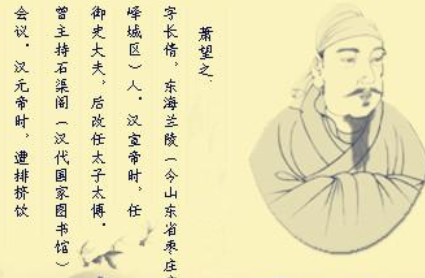 萧望之.
字长倩，东海兰陵（今山东省枣庄
峄城区）人。汉宣帝时，任
御史大夫，后改任太子太傅。
曾主持石渠阁（汉代国家图书馆）
会议。汉元帝时，遭排挤饮